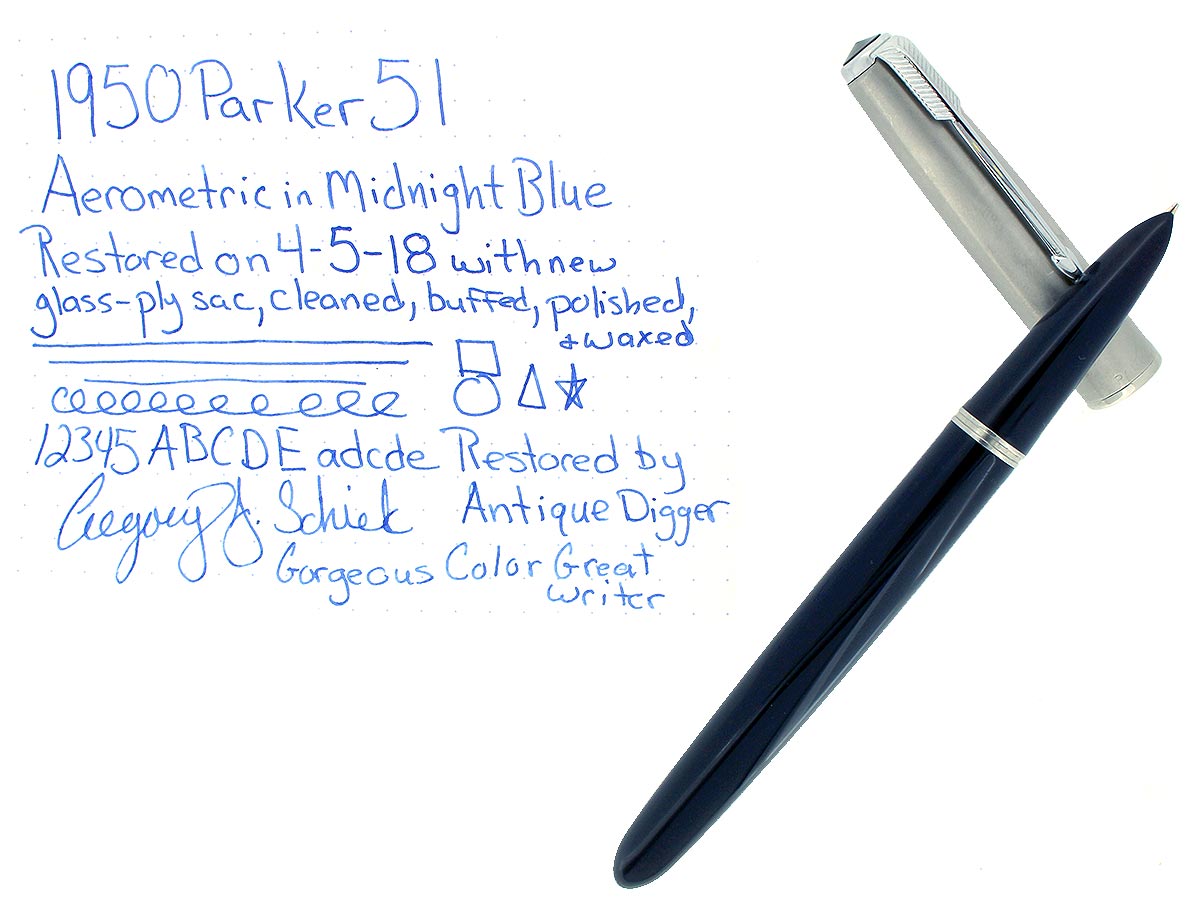 1950 Parker 51
Aerometric in Midnight Blue
Restored on 4-5-18 with new
glass-ply sac, cleaned, buffed, polished,
& waxed
12345 ABCDE adcde Restored by
Gregory J. Schiek Antique Digger
Gorgeous Color Great
writer